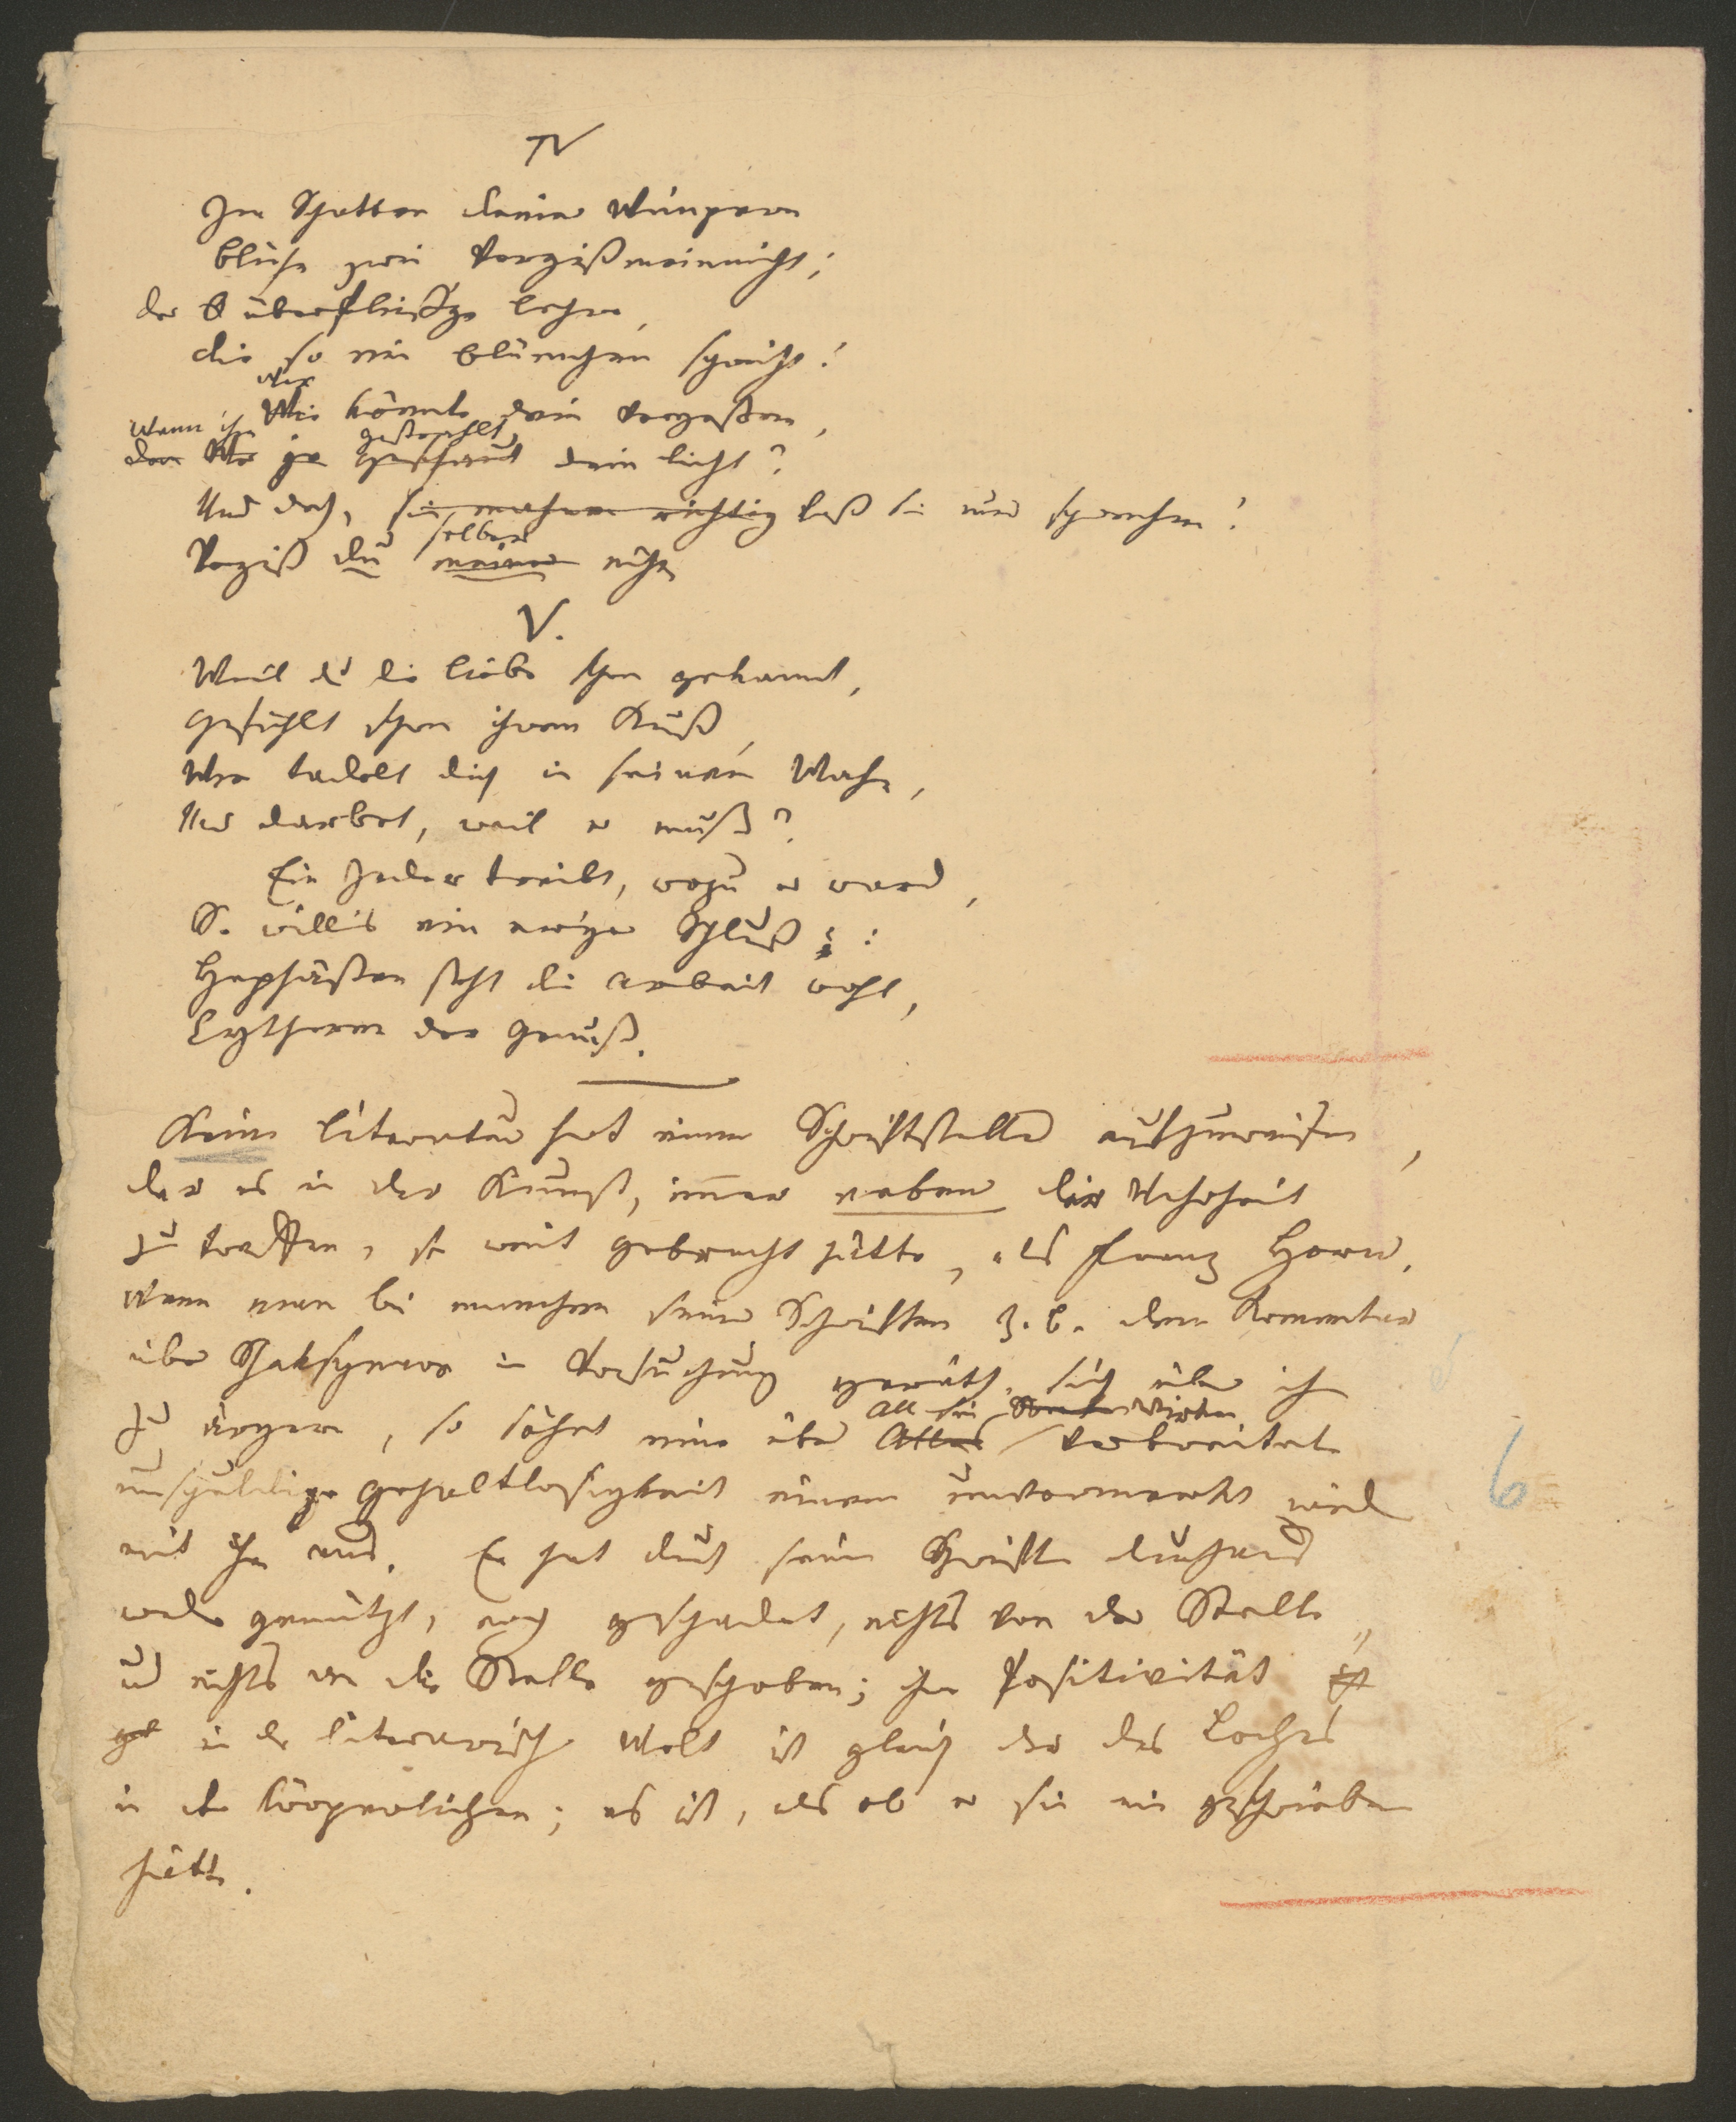 IV
Im Schatten deiner Wimpern
blühn zwei Vergißmeinnicht;
der überflüßge Lehre,
die so ein Blümchen spricht!
Wer
Wie könnte dein vergessen,
Wenn ihm gestrahlt
dem je geschaut dein Licht?
Und doch, sie mahnen richtig laß sie nur sprechen!
selber
Vergiß du meiner nicht
V.
Weil du die Liebe schon gekannt,
Gefühlt schon ihren Kuß,
Wer tadelt dich in seinem Wahn,
Und darbet, weil er muß?
Ein Jeder treibt, wozu er ward,
So will's ein ewger Schluß :
Hephästen steht die Arbeit wohl,
Cytheren der Genuß.
Keine Literatur hat einen Schriftsteller aufzuweisen,
der es in der Kunst, immer neben die Wahrheit
zu treffen, so weit gebracht hätte, als Franz Horn.
Wenn man bei manchen seiner Schriften z. B. dem Kommentar
über Shakspeare in Versuchung geräth, sich über ihn
All sein Wirken
zu ärgern, so söhnt eine über Alles verbreitete
unschuldige Gehaltlosigkeit einen unvermerkt wieder
mit ihm aus. Er hat durch seine Schriften durchaus
weder genützt, noch geschadet, nichts von der Stelle
und nichts an die Stelle geschoben; ihre Positivität ist
in der literarischen Welt ist gleich der des Loches
in der körperlichen; es ist, als ob er sie nie geschrieben
hätte.
6